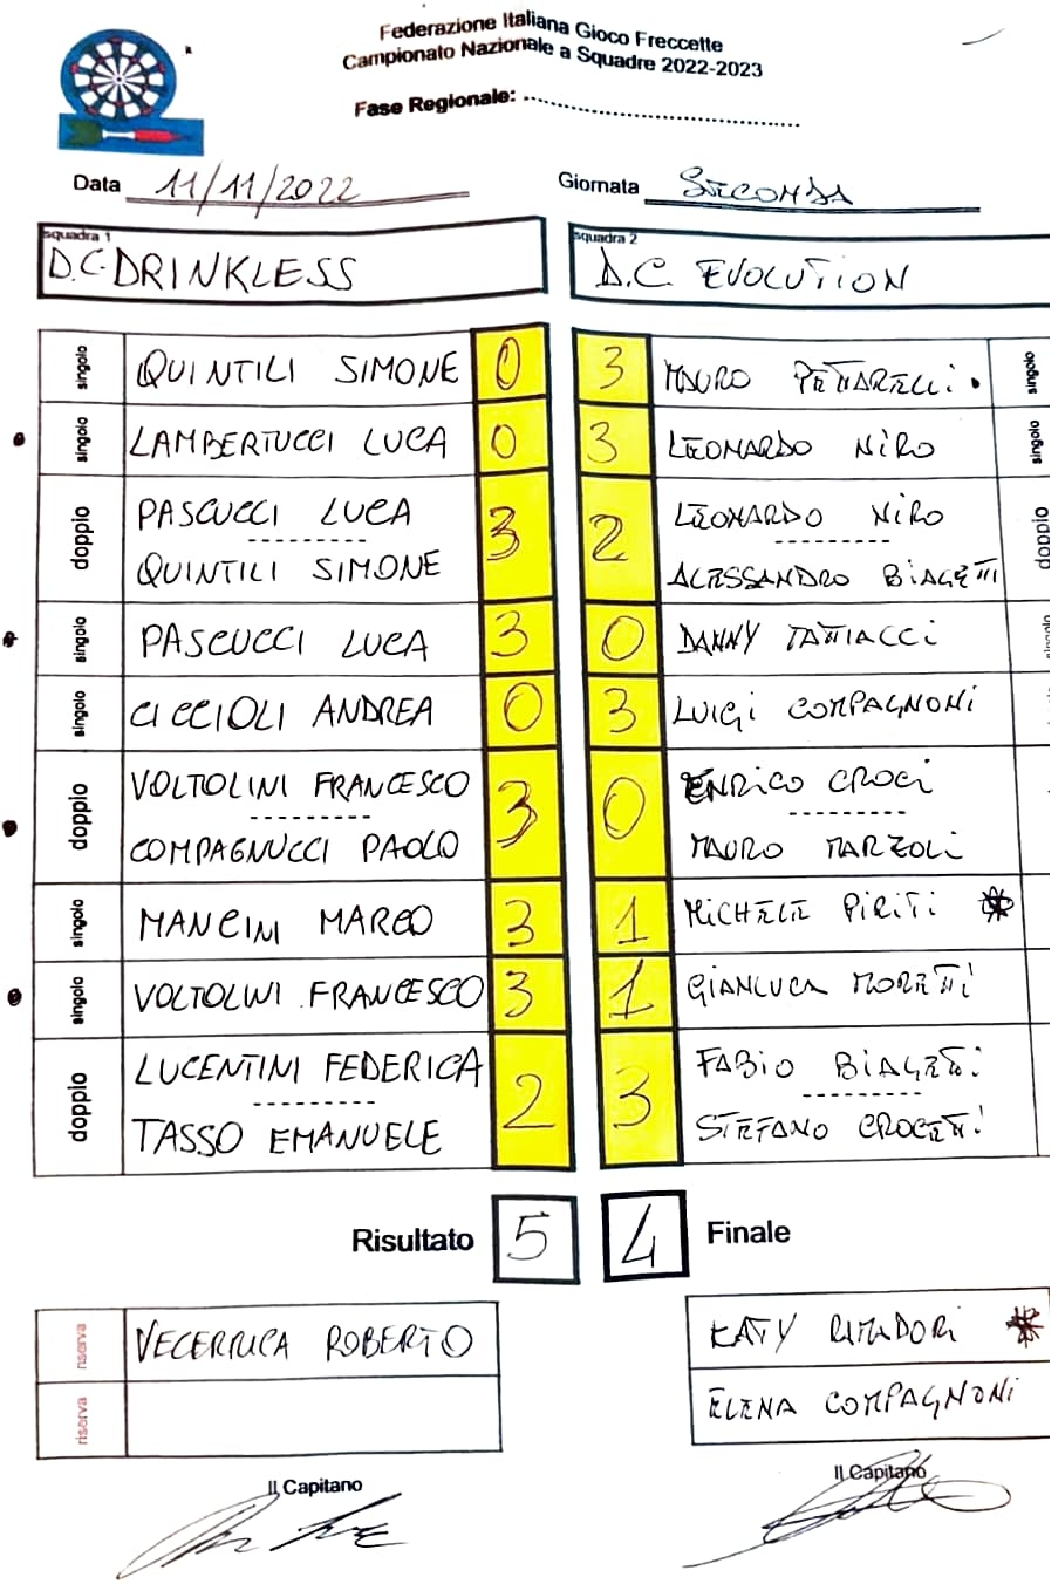 Federazione Italiana Gioco Freccette
Campionato Nazionale a Squadre 2022-2023
Fase Regionale: ........................................
Data 11/11/2022 Giornata SECONDA
squadra 1 squadra 2
D.C. DRINKLESS D.C. EVOLUTION
singolo QUINTILI SIMONE 0 3 MAURO PETTARELLi singolo
singolo LAMBERTUCCI LUCA 0 3 LEONARDO NiRO singolo
doppio PASCUCCI LUCA 3 2 LEONARDO NiRO doppio
QUINTILI SIMONE ALESSANDRO BiAGETTi
singolo PASCUCCI LUCA 3 0 DANNY TATTIACCi singolo
singolo CICCIOLI ANDREA 0 3 LUiGi COMPAGNONi
doppio VOLTOLINI FRANCESCO 3 0 ENRiCO CROCi
COMPAGNUCCI PAOLO MAURO MARZOLi
singolo MANCINI MARCO 3 1 MiCHELE PiRiTi
singolo VOLTOLINI FRANCESCO 3 1 GiANLUCA MORETTi
doppio LUCENTINI FEDERICA 2 3 FABiO BiAGETTi
TASSO EMANUELE STEFANO CROCETTi
Risultato 5 4 Finale
riserva VECERRICA ROBERTO KATY RiMADORi
riserva ELENA COMPAGNONi
Il Capitano Il Capitano